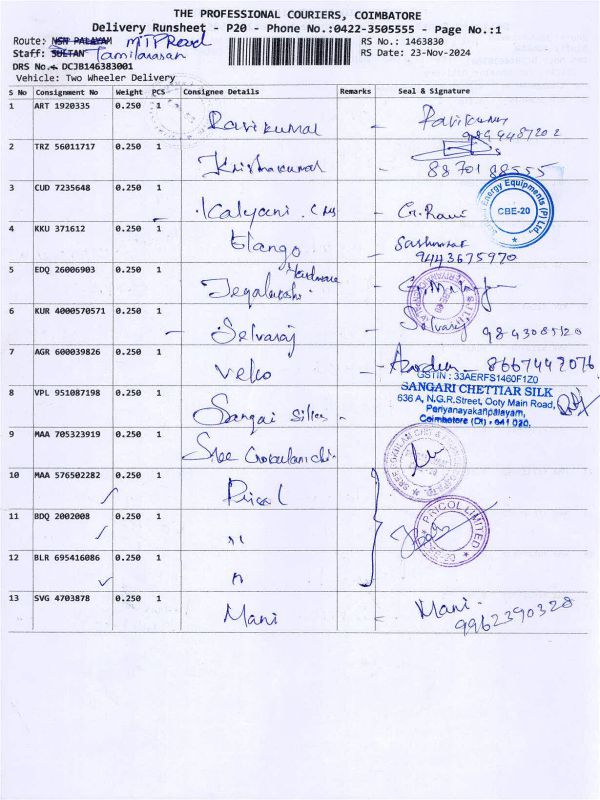 THE PROFESSIONAL COURIERS, COIMBATORE
Delivery Runsheet - P20 - Phone No.:0422-3505555 - Page No.:1
Route: NSN PALAYAM MTP Road RS No.: 1463830
Staff: SULTAN Tamilarasan RS Date: 23-Nov-2024
DRS No.: DCJB146383001
Vehicle: Two Wheeler Delivery
S No Consignment No Weight PCS Consignee Details Remarks Seal & Signature
1 ART 1920335 0.250 1 Ravikumar - Ravikumar
2 TRZ 56011717 0.250 1 Krishnakumar - 8870188555
3 CUD 7235648 0.250 1 Kalyani - ENERGY Equipments (P) Ltd., CBE-20
4 KKU 371612 0.250 1 Elango - 9443675970
5 EDQ 26006903 0.250 1 Hardware
6 KUR 4000570571 0.250 1 - Selvaraj - Selvaraj
7 AGR 600039826 0.250 1 Veko - 8667442076
GSTIN : 33AERFS1460F1Z0
SANGARI CHETTIAR SILK
636 A, N.G.R.Street, Ooty Main Road,
Periyanayakanpalayam,
Coimbatore (Dt) - 641 020.
8 VPL 951087198 0.250 1 -
9 MAA 705323919 0.250 1 Sree
10 MAA 576502282 0.250 1 Pricol
11 BDQ 2002008 0.250 1 " PRICOL LIMITED
12 BLR 695416086 0.250 1 "
13 SVG 4703878 0.250 1 Mani - Mani.
9962390328